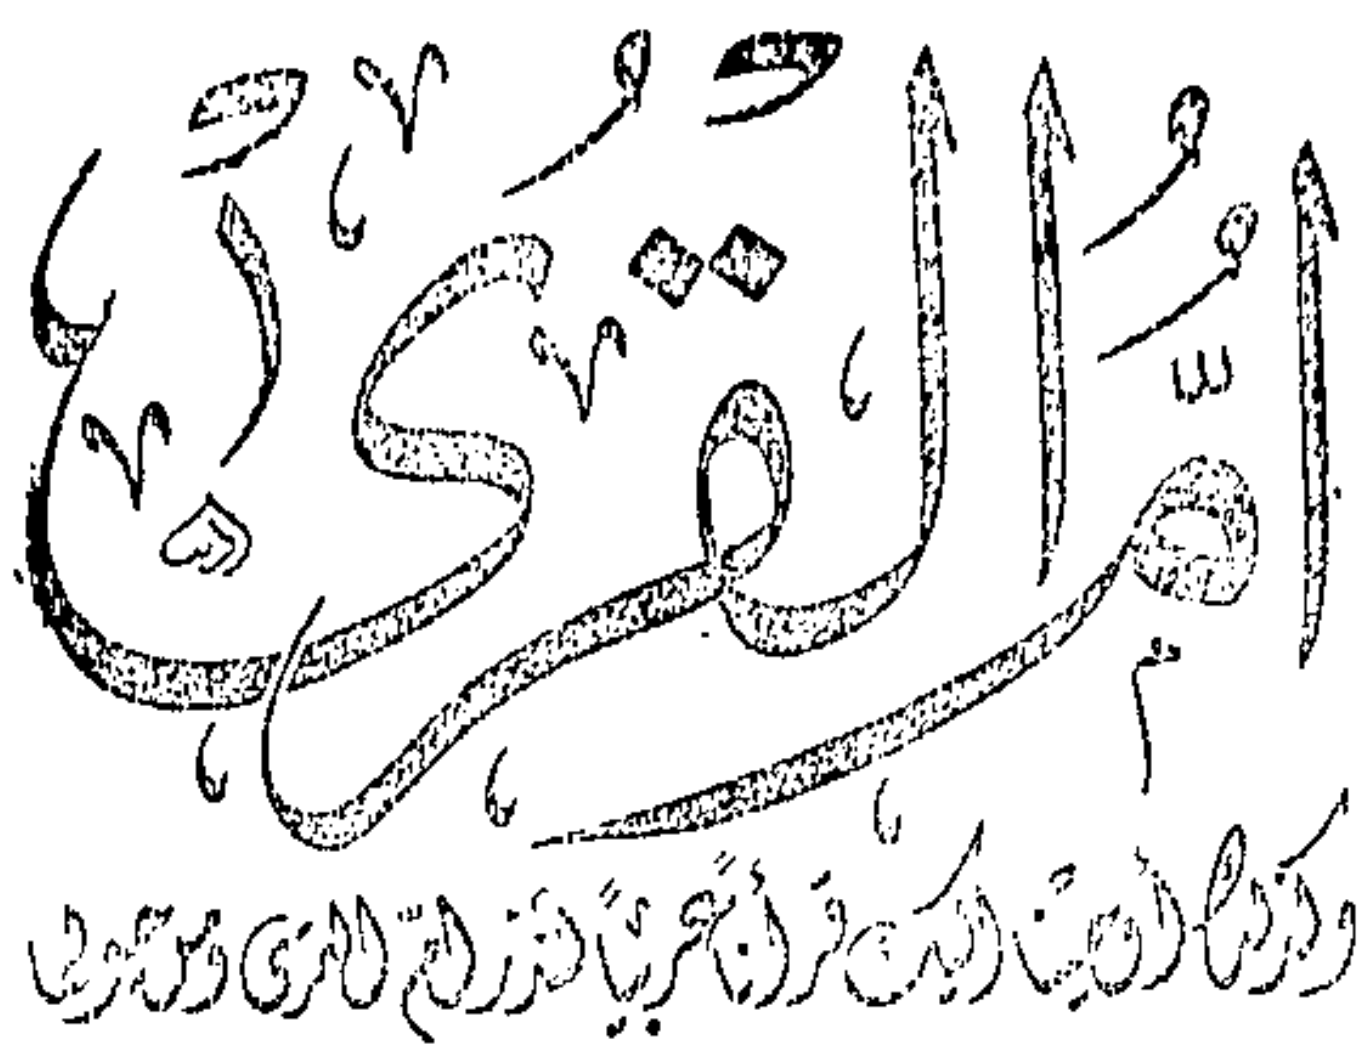 أُمُّ الْقُرَى
وكذلك أوحينا إليك قرآنا عربيا لتنذر أم القرى ومن حولها